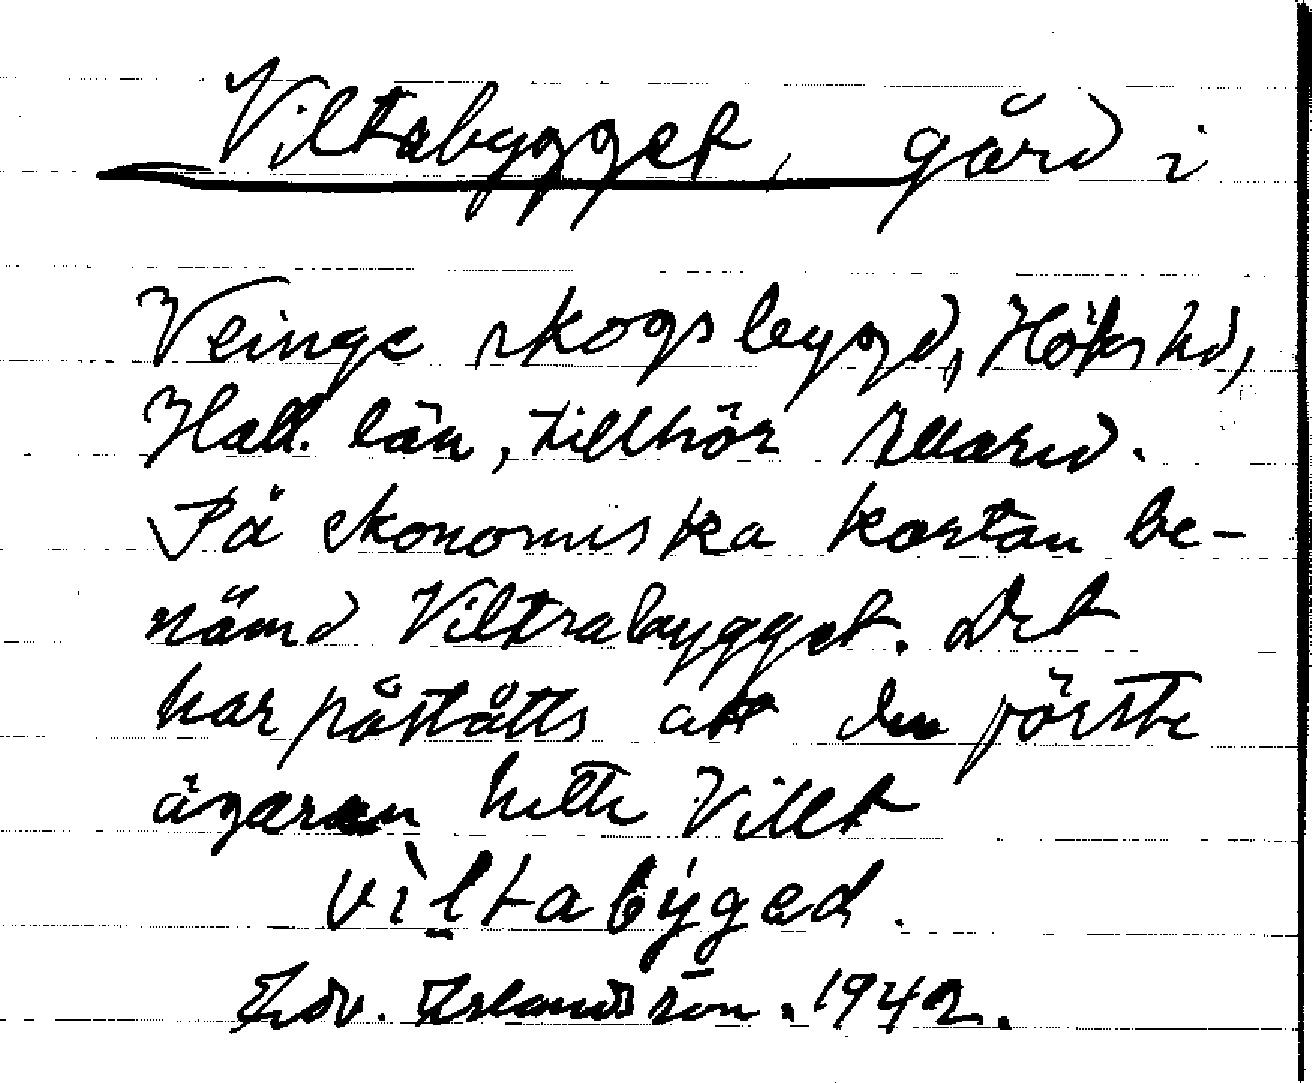 Viltabygget, gård i
Veinge skogsbygd, Höks hd,
Hall. län, tillhör Alland.
På ekonomiska kartan be-
nämd Viltrabygget. Det
har påståtts att den förste
ägaren hette Villt
vìltabýged.
Edv. Erlandsson. 1942.